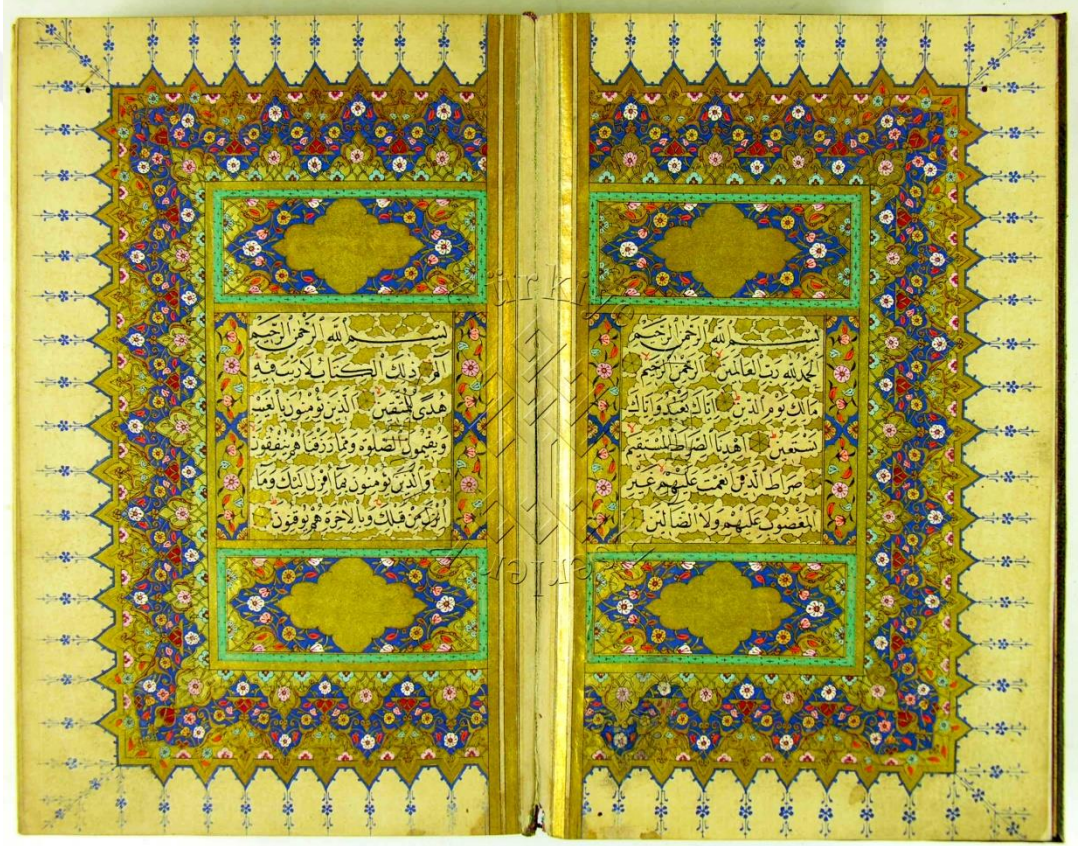 بسم الله الرحمن الرحيم
الحمد لله رب العالمين الرحمن الرحيم
مالك يوم الدين اياك نعبد واياك
نستعين اهدنا الصراط المستقيم
صراط الذين انعمت عليهم غير
المغضوب عليهم ولا الضالين
بسم الله الرحمن الرحيم
الم ذلك الكتاب لا ريب فيه
هدى للمتقين الذين يؤمنون بالغيب
ويقيمون الصلوة ومما رزقناهم ينفقون
والذين يؤمنون بما انزل اليك وما
انزل من قبلك وبالاخرة هم يوقنون
Türkiye